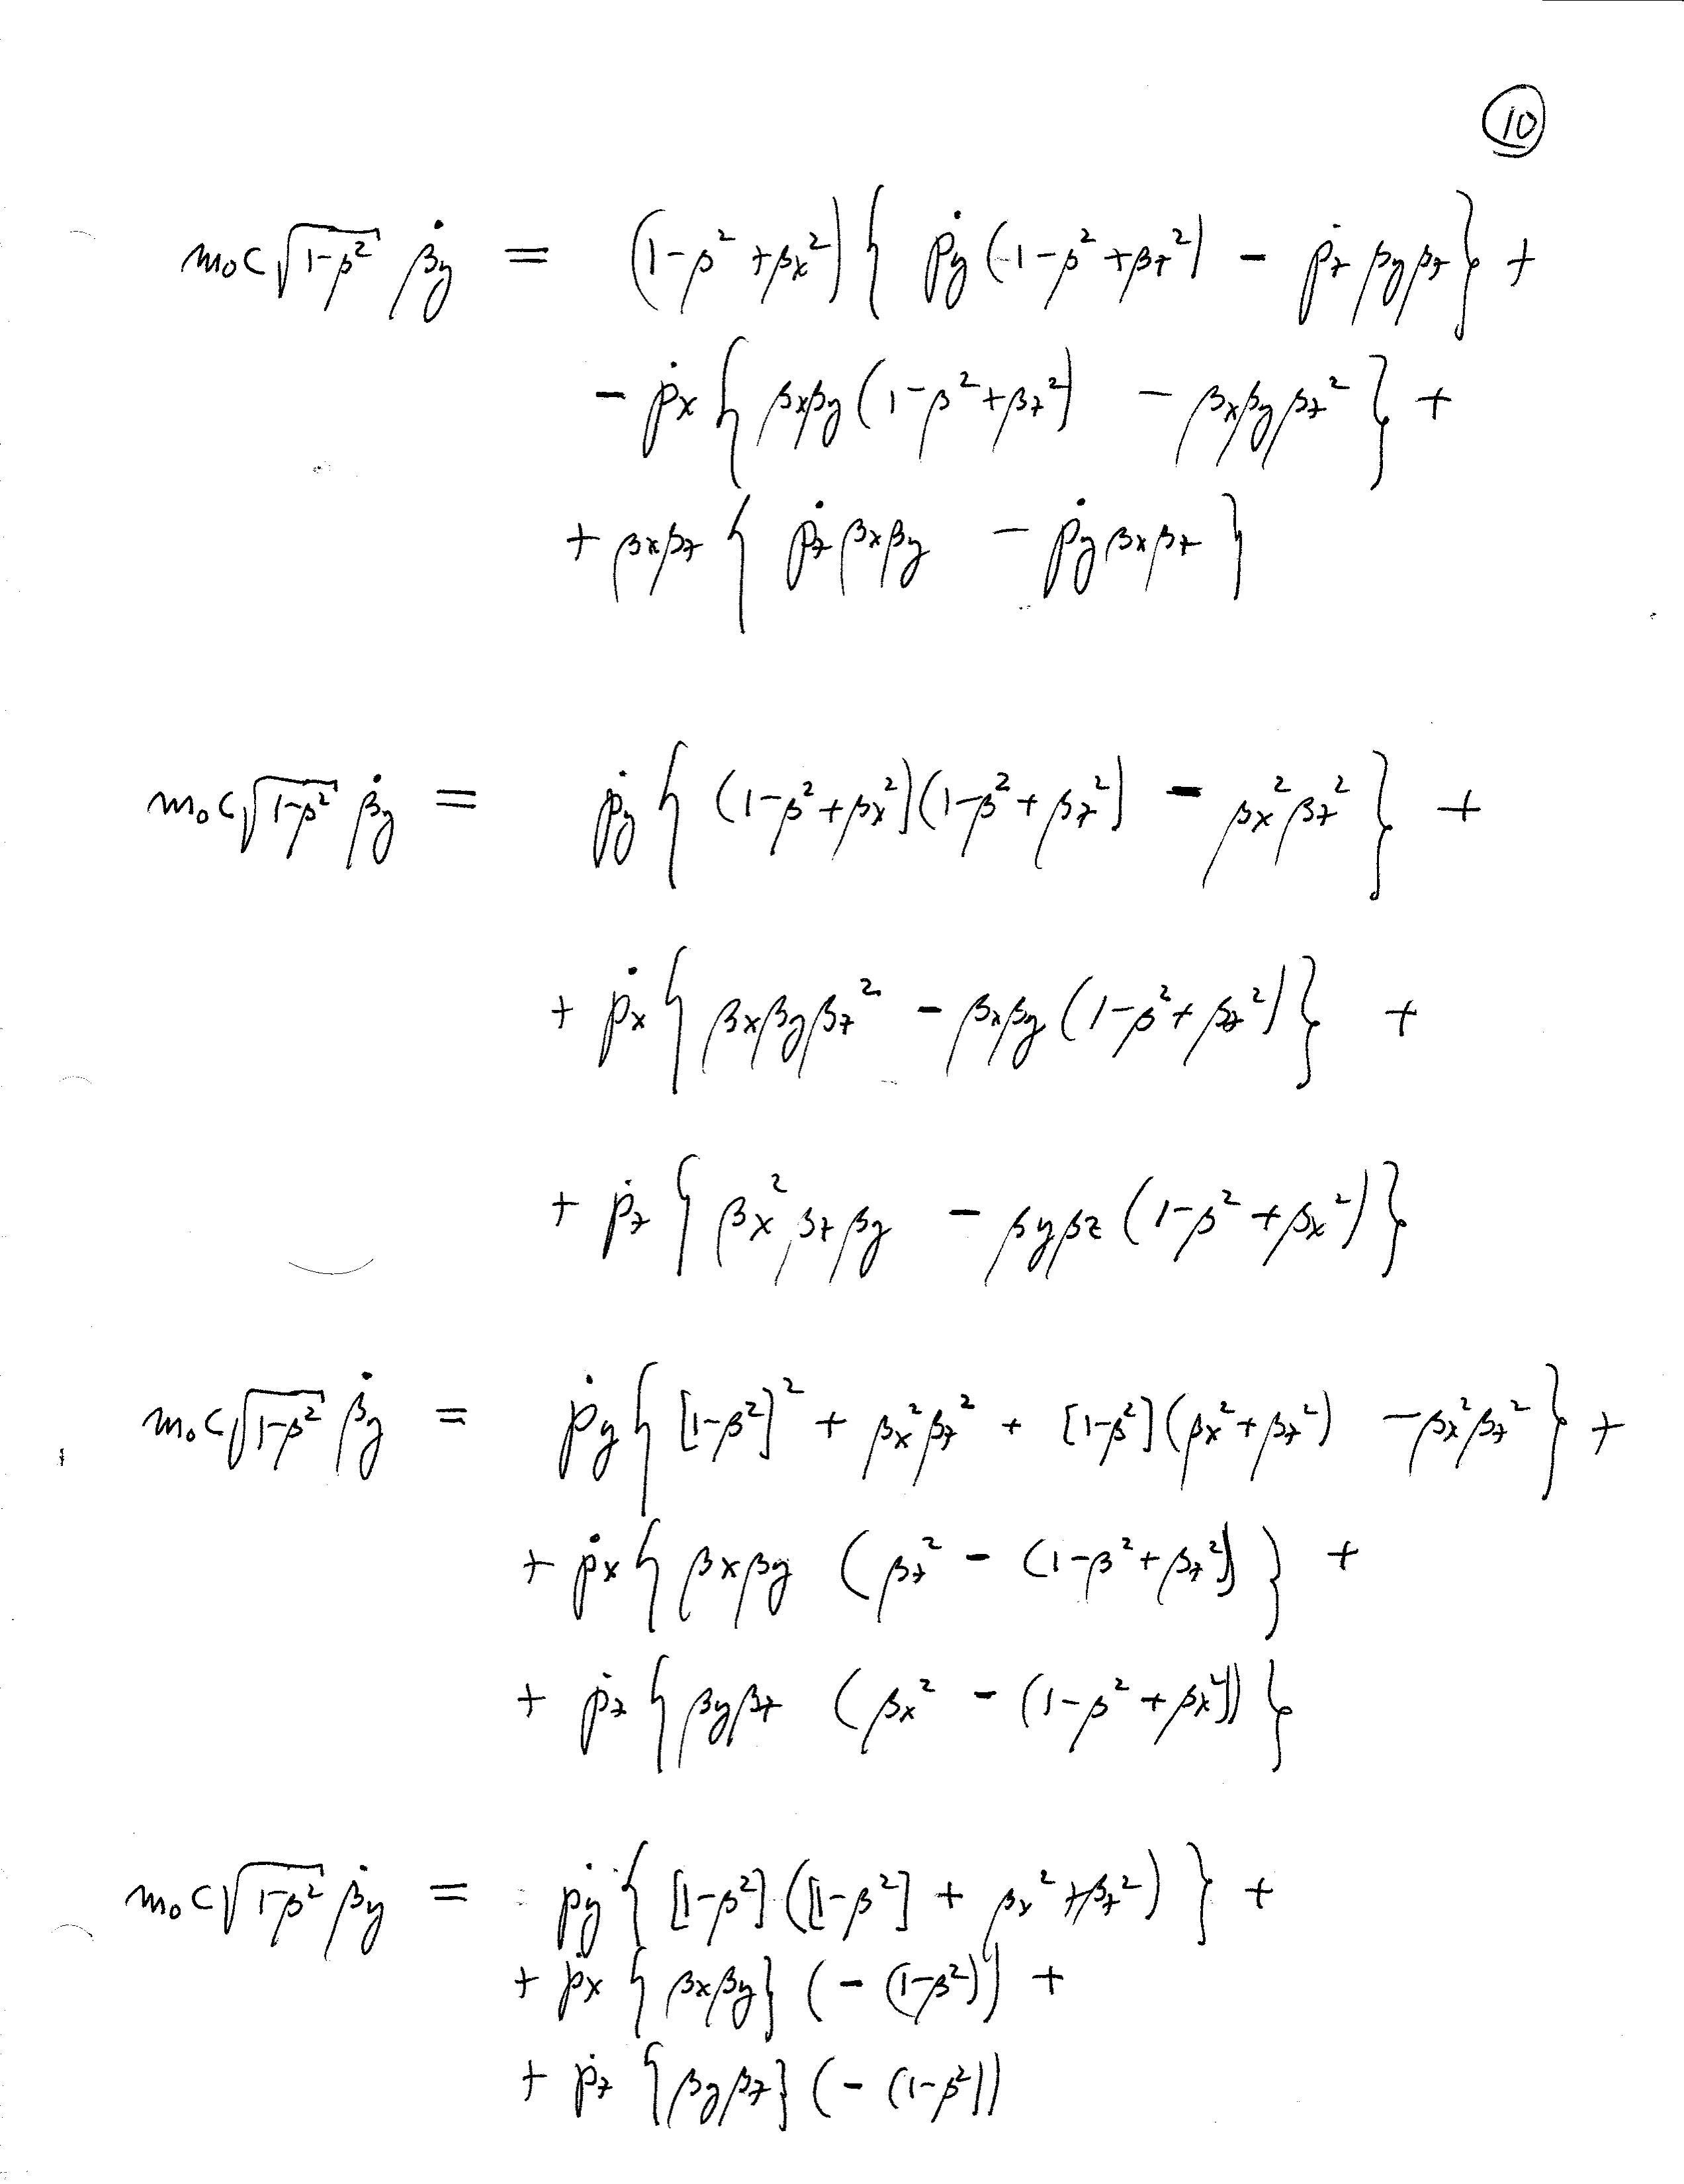 10
m₀c√(1-β²) β̇y = (1-β²+βx²){ ṗy (1-β²+βz²) - ṗz βyβz } +
- ṗx { βxβy (1-β²+βz²) - βxβyβz² } +
+ βxβz { ṗz βxβy - ṗy βxβz }
m₀c√(1-β²) β̇y = ṗy { (1-β²+βx²)(1-β²+βz²) - βx²βz² } +
+ ṗx { βxβyβz² - βxβy (1-β²+βz²) } +
+ ṗz { βx²βzβy - βyβz (1-β²+βx²) }
m₀c√(1-β²) β̇y = ṗy { [1-β²]² + βx²βz² + [1-β²](βx²+βz²) - βx²βz² } +
+ ṗx { βxβy (βz² - (1-β²+βz²)) } +
+ ṗz { βyβz (βx² - (1-β²+βx²)) }
m₀c√(1-β²) β̇y = ṗy { [1-β²]([1-β²] + βx²+βz²) } +
+ ṗx { βxβy } (- (1-β²)) +
+ ṗz { βyβz } (- (1-β²))